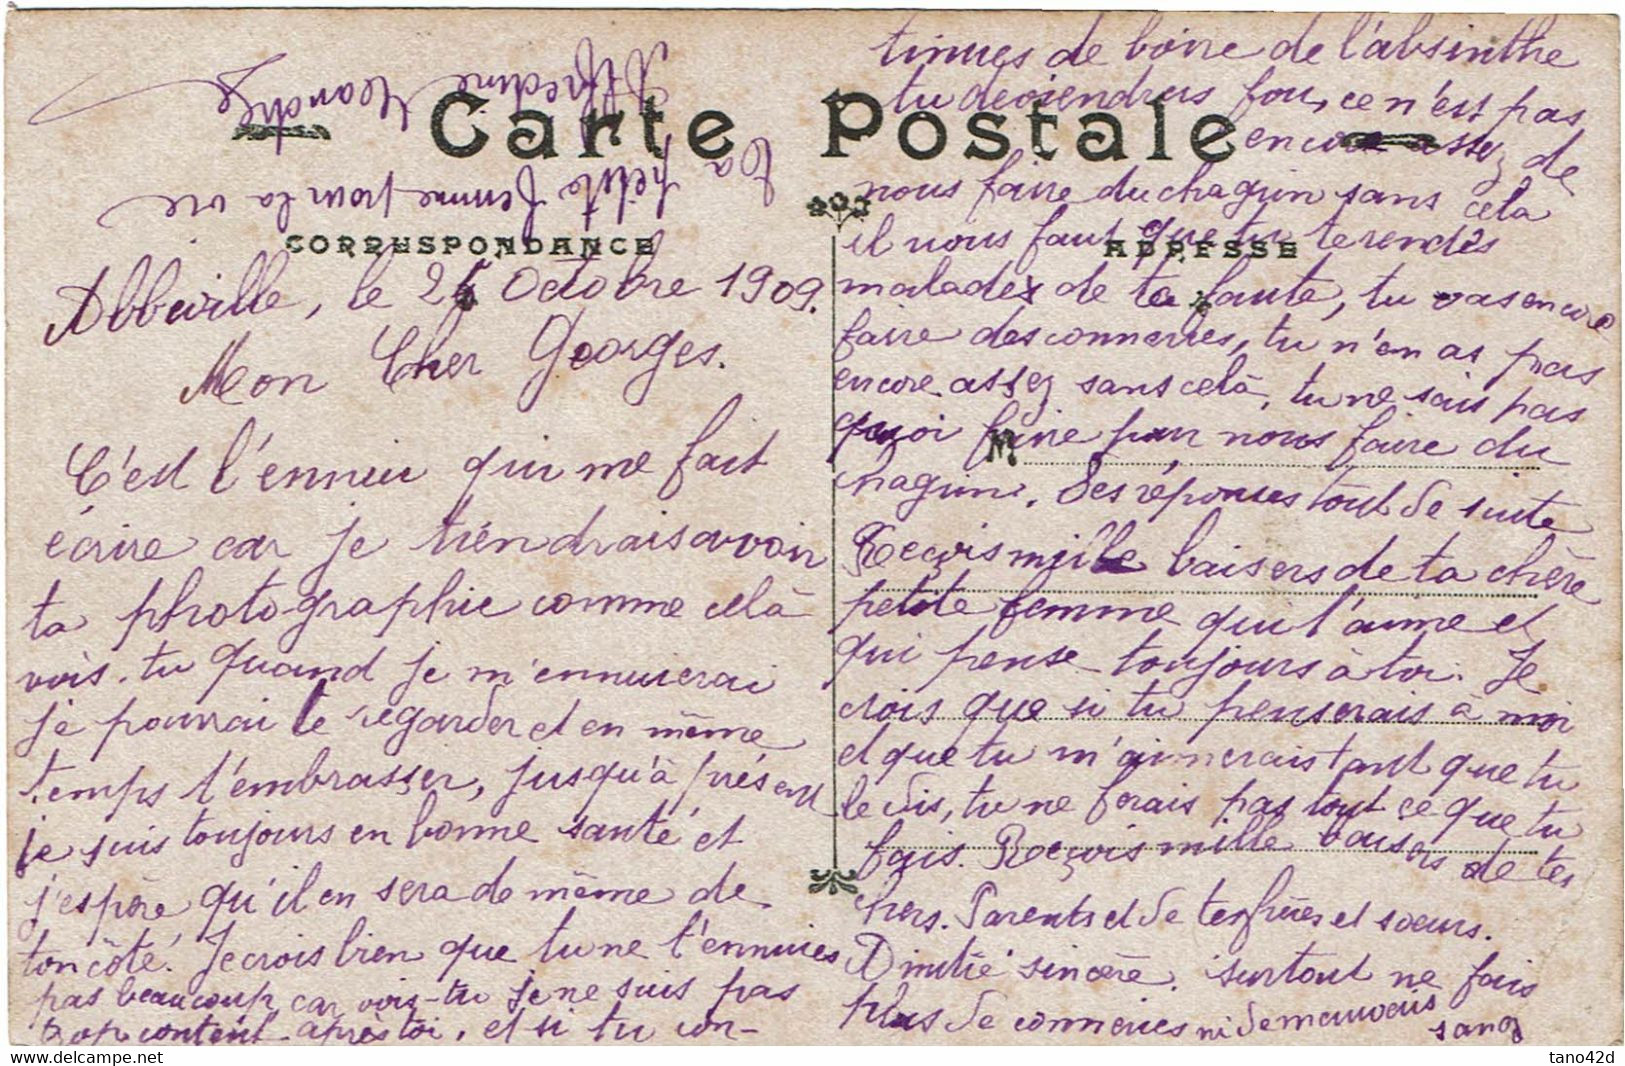 Carte Postale
CORRESPONDANCE
ADRESSE
M
Abbeville, le 26 Octobre 1909.
Mon Cher Georges.
C'est l'ennui qui me fait
écrire car je tiendrais avoir
ta photographie comme celà
vois-tu quand je m'ennuierai
je pourrai te regarder et en même
temps t'embrasser, jusqu'à présent
je suis toujours en bonne santé et
j'espère qu'il en sera de même de
ton côté. Je crois bien que tu ne t'ennuies
pas beaucoup car vois-tu je ne suis pas
trop content après toi, et si tu con-
tinues de boire de l'absinthe
tu deviendras fou, ce n'est pas
encore assez de
nous faire du chagrin sans cela
il nous faut que tu te rendes
malades de ta faute, tu vas encore
faire des conneries, tu n'en as pas
encore assez sans celà, tu ne sais pas
quoi faire pour nous faire du
chagrin. Des réponses tout de suite
Reçois mille baisers de ta chère
petite femme qui t'aime et
qui pense toujours à toi. Je
crois que si tu penserais à moi
et que tu m'aimerais tant que tu
le dis, tu ne ferais pas tout ce que tu
fais. Reçois mille baisers de tes
chers Parents et de tes frères et soeurs.
Amitié sincère. Surtout ne fais
plus de conneries ni de mauvais
sang
ta petite femme pour la vie
Alfredine
tano42d
Issu du site www.delcampe.net